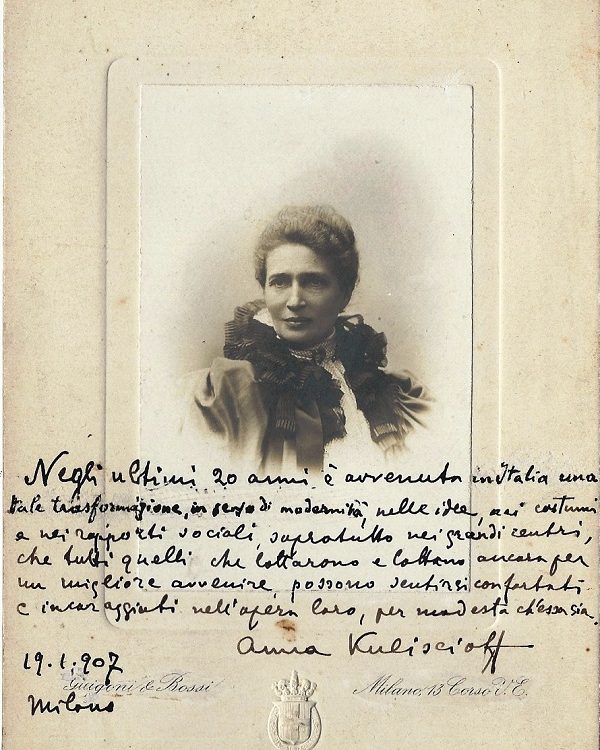 Negli ultimi 20 anni è avvenuta in Italia una
tale trasformazione, in senso di modernità, nelle idee, nei costumi
e nei rapporti sociali, sopratutto nei grandi centri,
che tutti quelli che lottarono e lottano ancora per
un migliore avvenire, possono sentirsi confortati
e incoraggiati nell'opera loro, per modesta ch'essa sia.
Anna Kuliscioff
19.1.907
Guigoni & Bossi Milano, 13 Corso V.E.
Milano